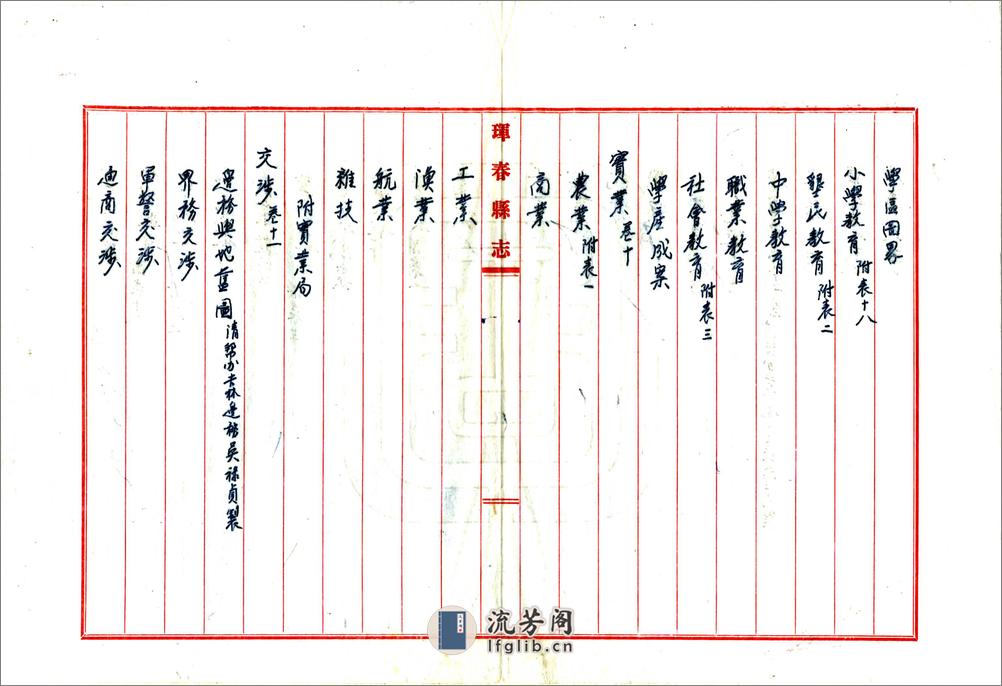 學區圖畧
小學教育 附表十八
墾民教育 附表二
中學教育
職業教育
社會教育 附表三
學產成案
實業 卷十
農業 附表一
商業
琿春縣志
工業
漁業
航業
雜技
附實業局
交涉 卷十一
邊務與地蓝圖 清幇办吉林邊務吳祿貞製
界務交涉
軍警交涉
通商交涉
流芳阁
lfglib.cn